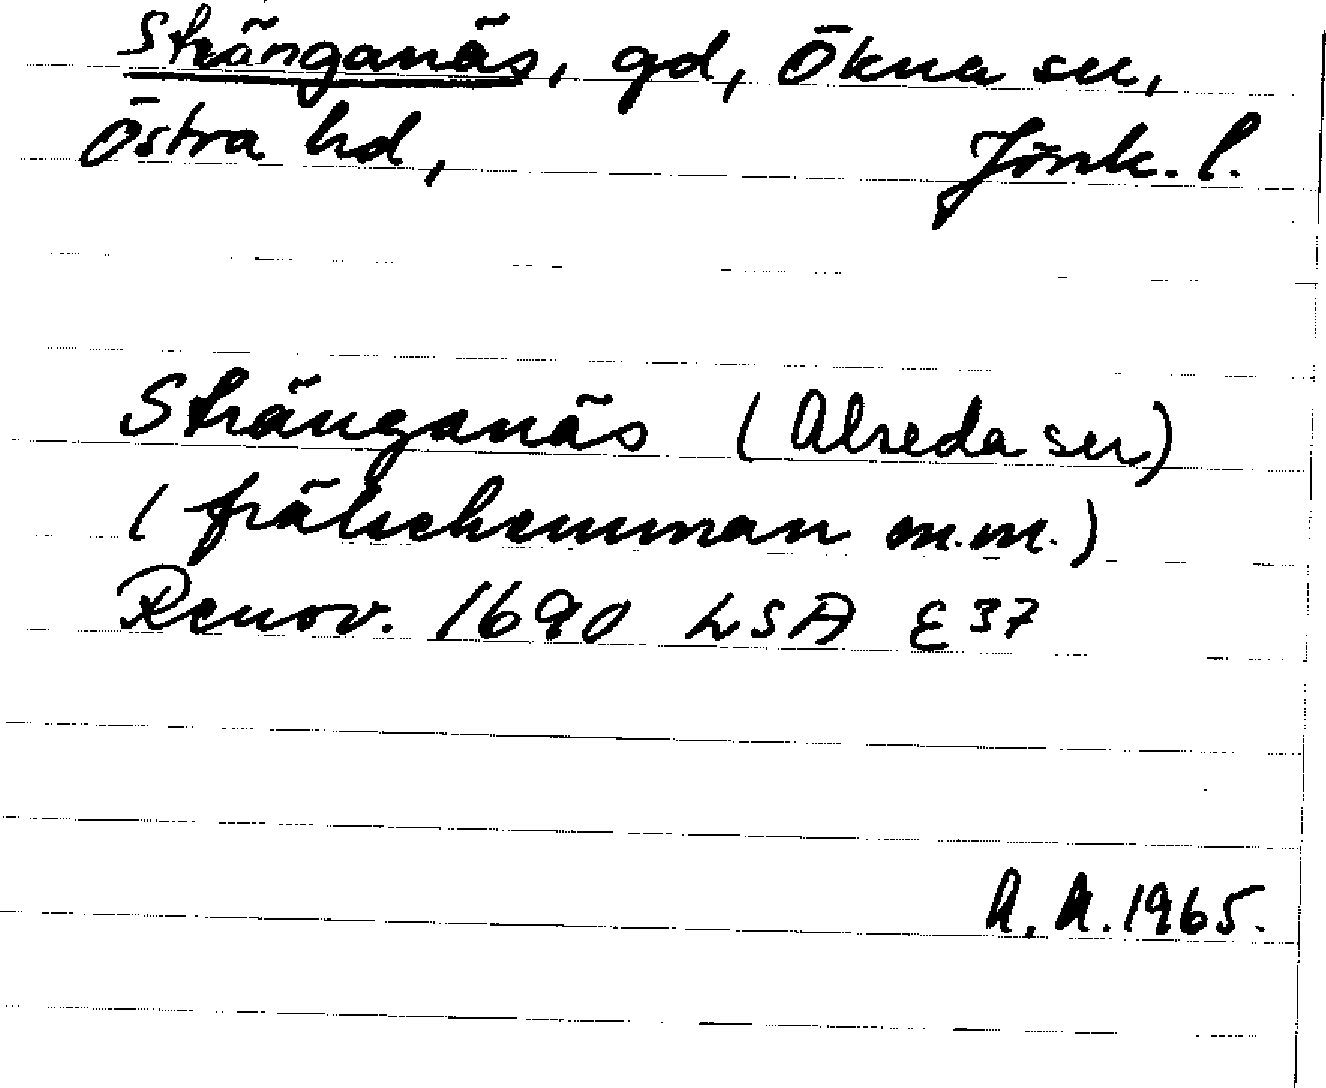 Stränganäs, gd, Ökna sn,
Östra hd, Jönk. l.
Stränganäs (Alseda sn)
(frälsehemman m.m.)
Renov. 1690 LSA E 37
A. A. 1965.